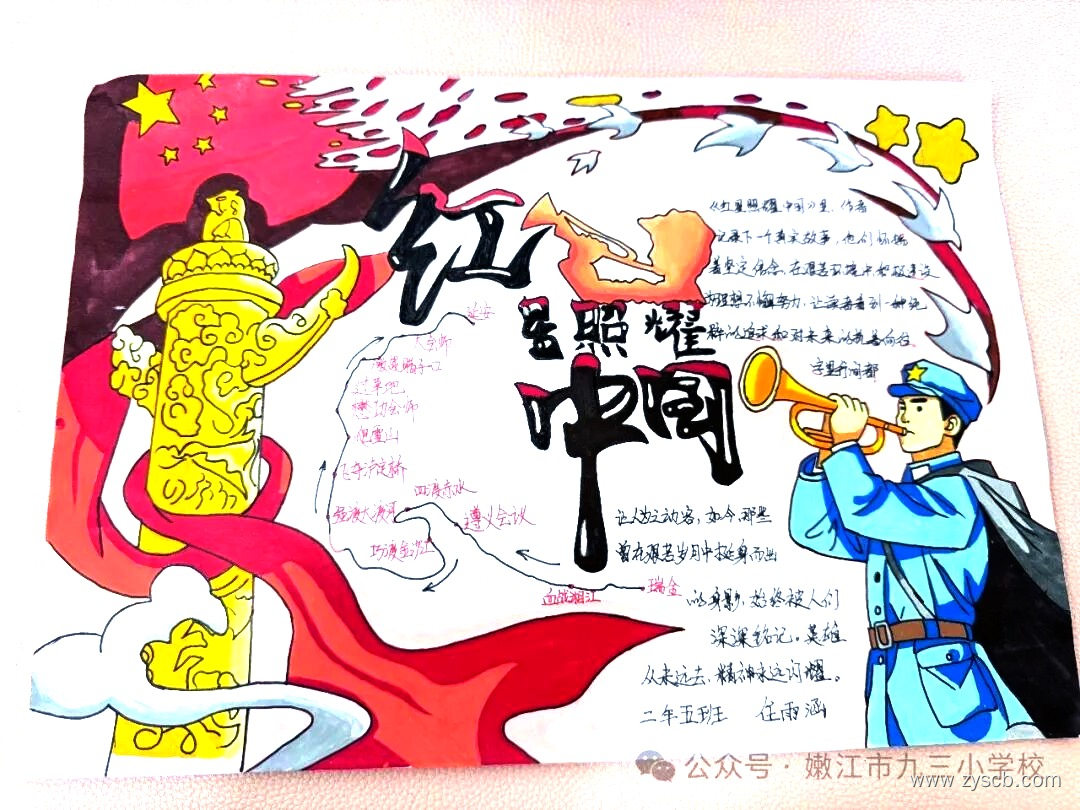 红星照耀中国
《红星照耀中国》里，作者
记录下一个真实故事，他们怀揣
着坚定信念，在艰苦环境中为
理想不懈努力，让读者看到一种纯
粹的追求和对未来的执着向往
字里行间都
延安
大会师
腊子口
过草地
懋功会师
爬雪山
飞夺泸定桥
强渡大渡河
四渡赤水
遵义会议
巧渡金沙江
血战湘江
瑞金
让人为之动容，如今，那些
曾在艰苦岁月中挺身而出
的身影，始终被人们
深深铭记。英雄
从未远去，精神永远闪耀。
二年五班 任雨涵
公众号·嫩江市九三小学校
www.zyscb.com